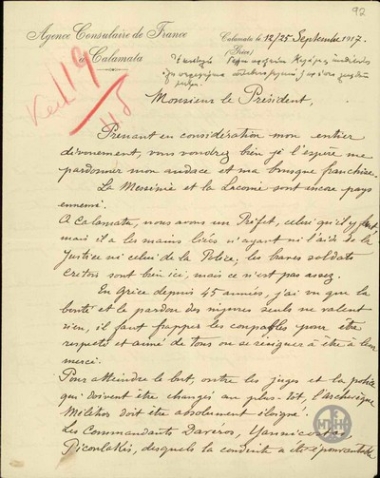 92
Agence Consulaire de France
à Calamata
Calamata le 12/25 Septembre 1917.
(Grèce)
119
Monsieur le Président,
Prenant en considération mon entier
dévouement, vous voudrez bien je l'espère me
pardonner mon audace et ma brusque franchise.
La Messénie et la Laconie sont encore pays
ennemi.
A Calamata, nous avons un Préfet, celui qu'il y faut
mais il a les mains liées n'ayant ni l'aide de la
Justice ni celui de la Police, les braves soldats
Crétois sont bien ici, mais ce n'est pas assez.
En Grèce depuis 45 années, j'ai vu que la
bonté et le pardon des injures seuls ne valent
rien, il faut frapper les coupables pour être
respecté et aimé de tous ou se résigner à être à leur
merci.
Pour atteindre le but, outre les juges et la police
qui doivent être changés au plus tôt, l'archevêque
Mélétios doit être absolument éloigné.
Les Commandants Davéros, Yannicostas
desquels la conduite a été épouvantable